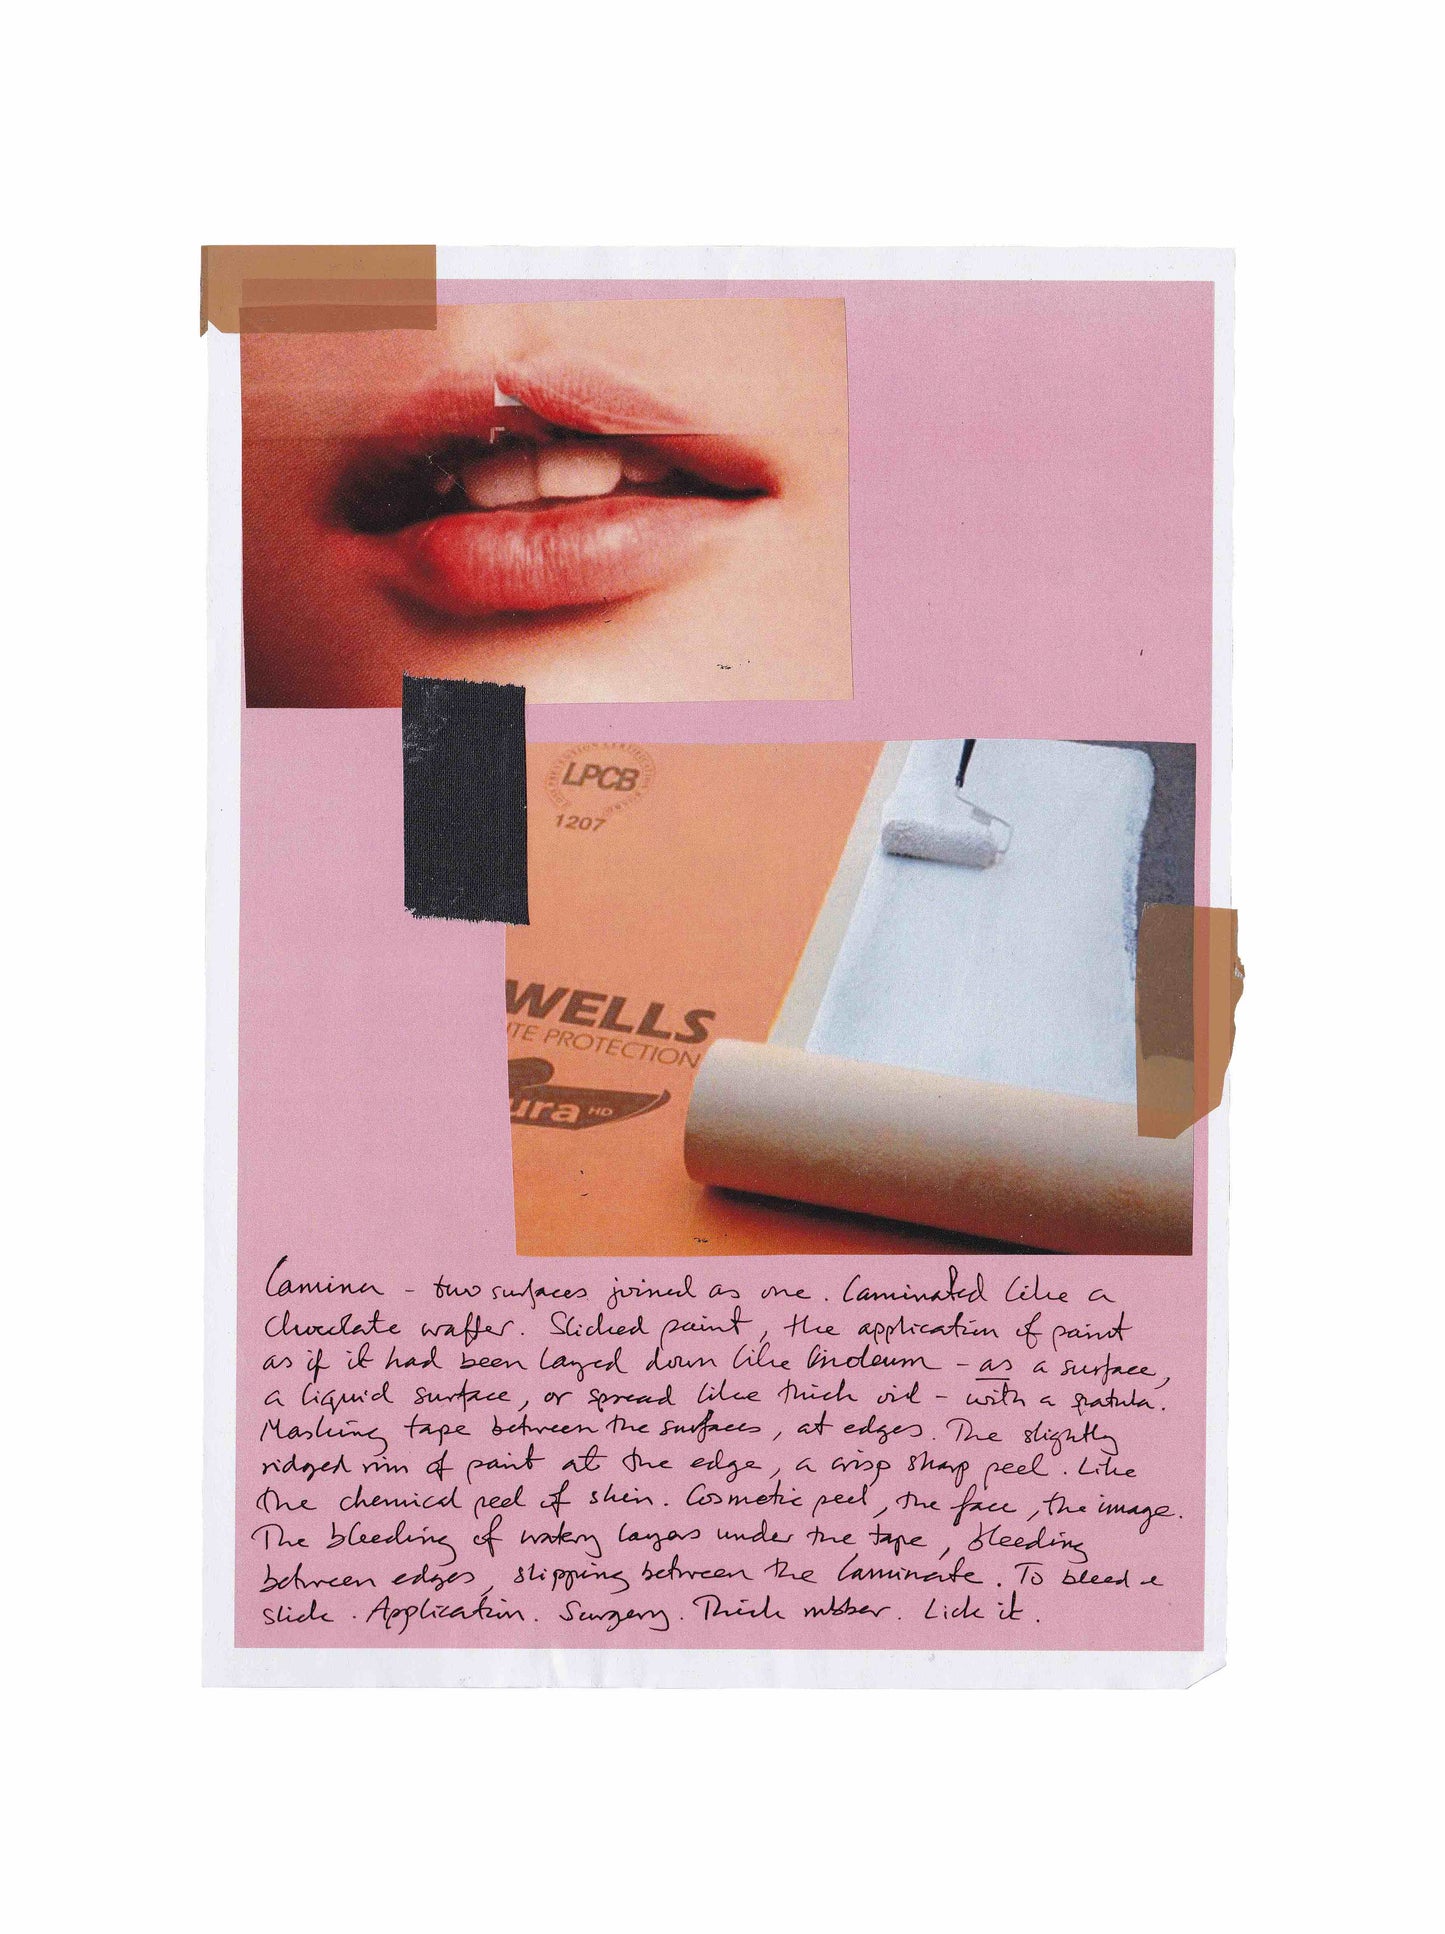 LPCB
1207
WELLS
ITE PROTECTION
ura HD
Lamina - two surfaces joined as one. Laminated like a
chocolate waffer. Slicked paint, the application of paint
as if it had been layed down like linoleum - as a surface,
a liquid surface, or spread like thick oil - with a spatula.
Masking tape between the surfaces, at edges. The slightly
ridged rim of paint at the edge, a crisp sharp peel. Like
the chemical peel of skin. Cosmetic peel, the face, the image.
The bleeding of watery layers under the tape, bleeding
between edges, slipping between the laminate. To bleed &
slick. Application. Surgery. Thick rubber. Lick it.